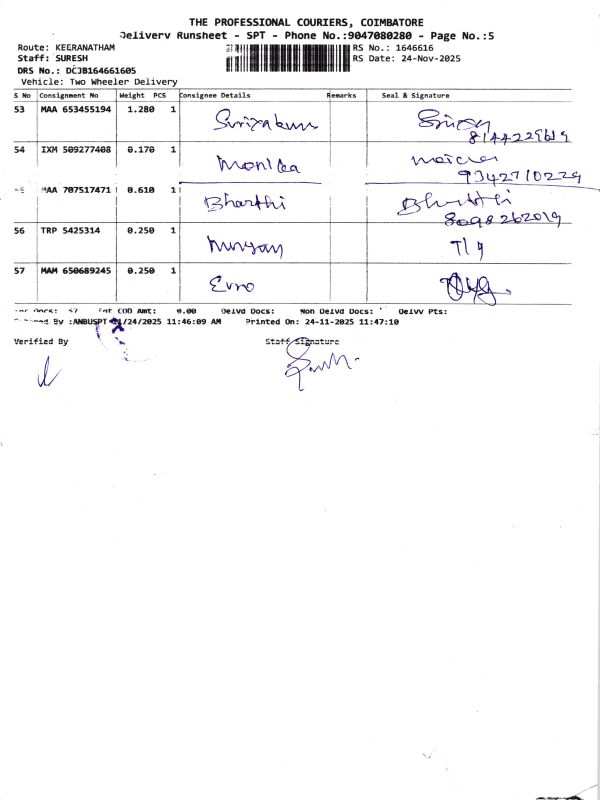 THE PROFESSIONAL COURIERS, COIMBATORE
Delivery Runsheet - SPT - Phone No.:9047080280 - Page No.:5
Route: KEERANATHAM RS No.: 1646616
Staff: SURESH RS Date: 24-Nov-2025
DRS No.: DCJB164661605
Vehicle: Two Wheeler Delivery
S No Consignment No Weight PCS Consignee Details Remarks Seal & Signature
53 MAA 653455194 1.280 1 Suriyakum
8144229619
54 IXM 509277408 0.170 1 Monika
9342710229
MAA 707517471 0.610 1 Bharthi Bharthi
8098262019
56 TRP 5425314 0.250 1 Murugan T/9
57 MAM 650689245 0.250 1
Docs: 57 COD Amt: 0.00 Delvd Docs: Non Delvd Docs: Delvy Pts:
By :ANBUSPT 11/24/2025 11:46:09 AM Printed On: 24-11-2025 11:47:10
Verified By Staff Signature